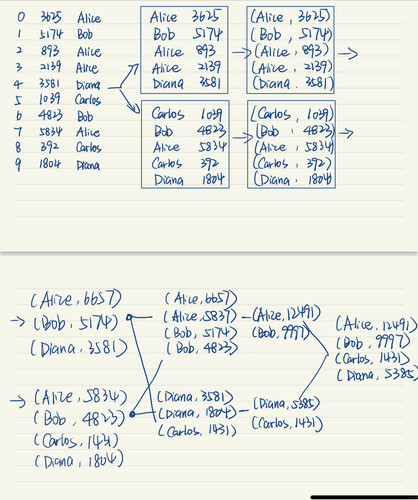 0 3625 Alice
1 5174 Bob
2 893 Alice
3 2139 Alice
4 3581 Diana
5 1039 Carlos
6 4823 Bob
7 5834 Alice
8 392 Carlos
9 1804 Diana
Alice 3625
Bob 5174
Alice 893
Alice 2139
Diana 3581
(Alice, 3625)
(Bob, 5174)
(Alice, 893)
(Alice, 2139)
(Diana, 3581)
Carlos 1039
Bob 4823
Alice 5834
Carlos 392
Diana 1804
(Carlos, 1039)
(Bob, 4823)
(Alice, 5834)
(Carlos, 392)
(Diana, 1804)
(Alice, 6657)
(Bob, 5174)
(Diana, 3581)
(Alice, 5834)
(Bob, 4823)
(Carlos, 1431)
(Diana, 1804)
(Alice, 6657)
(Alice, 5837)
(Bob, 5174)
(Bob, 4823)
(Diana, 3581)
(Diana, 1804)
(Carlos, 1431)
(Alice, 12491)
(Bob, 9997)
(Diana, 5385)
(Carlos, 1431)
(Alice, 12491)
(Bob, 9997)
(Carlos, 1431)
(Diana, 5385)